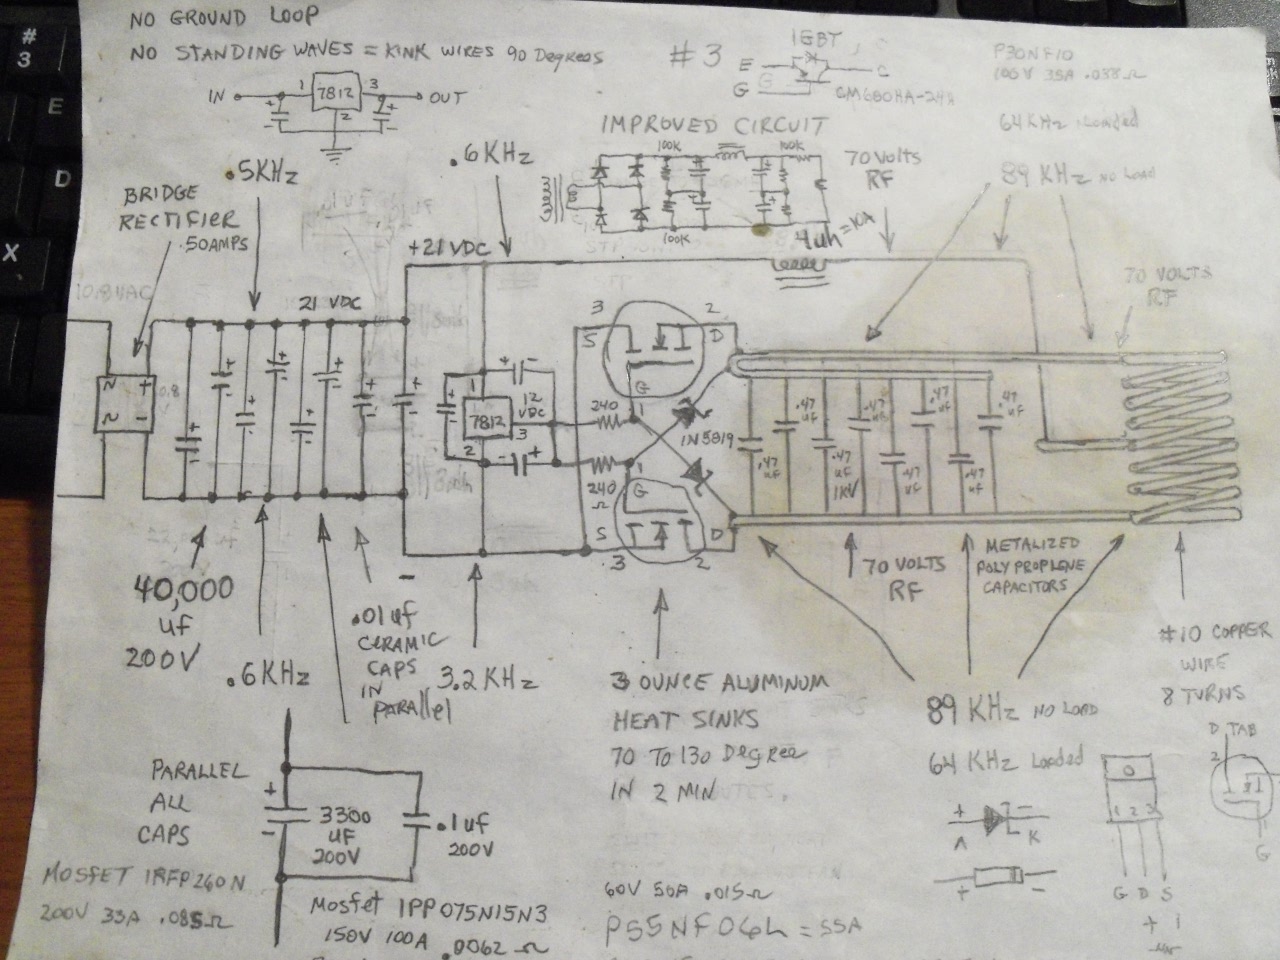 NO GROUND LOOP
NO STANDING WAVES = KINK WIRES 90 Degrees
#3
IGBT
E
G
G
C
P30NF10
100V 35A .038Ω
IN
1
7812
3
OUT
2
IMPROVED CIRCUIT
100K
100K
100K
64KHz Loaded
89 KHz NO LOAD
.5KHz
.6KHz
70 Volts
RF
BRIDGE
RECTIFIER
50AMPS
+21 VDC
4uh
70 VOLTS
RF
10.8VAC
21 VDC
3
2
S
D
G
~
+
~
-
12
VDC
1
7812
3
2
240
1
1N5819
240
Ω
1
G
S
D
3
2
.47
uf
.47
uf
.47
uf
1KV
.47
uf
.47
uf
.47
uf
.47
uf
.47
uf
40,000
uf
200V
.6KHz
.01uf
CERAMIC
CAPS
IN
PARAllel
3.2KHz
3 OUNCE ALUMINUM
HEAT SINKS
70 TO 130 Degree
IN 2 MIN
70 VOLTS
RF
METALIZED
POLYPROPLENE
CAPACITORS
#10 COPPER
WIRE
8 TURNS
89 KHz NO LOAD
64 KHz Loaded
PARALLEL
ALL
CAPS
+
-
3300
UF
200V
.1uf
200V
MOSfET IRFP260N
200V 33A .085Ω
Mosfet IPP075N15N3
150V 100A .0062 Ω
60V 50A .015Ω
P55NF06L = 55A
+
-
A
K
+
-
1 2 3
G D S
D TAB
2
G